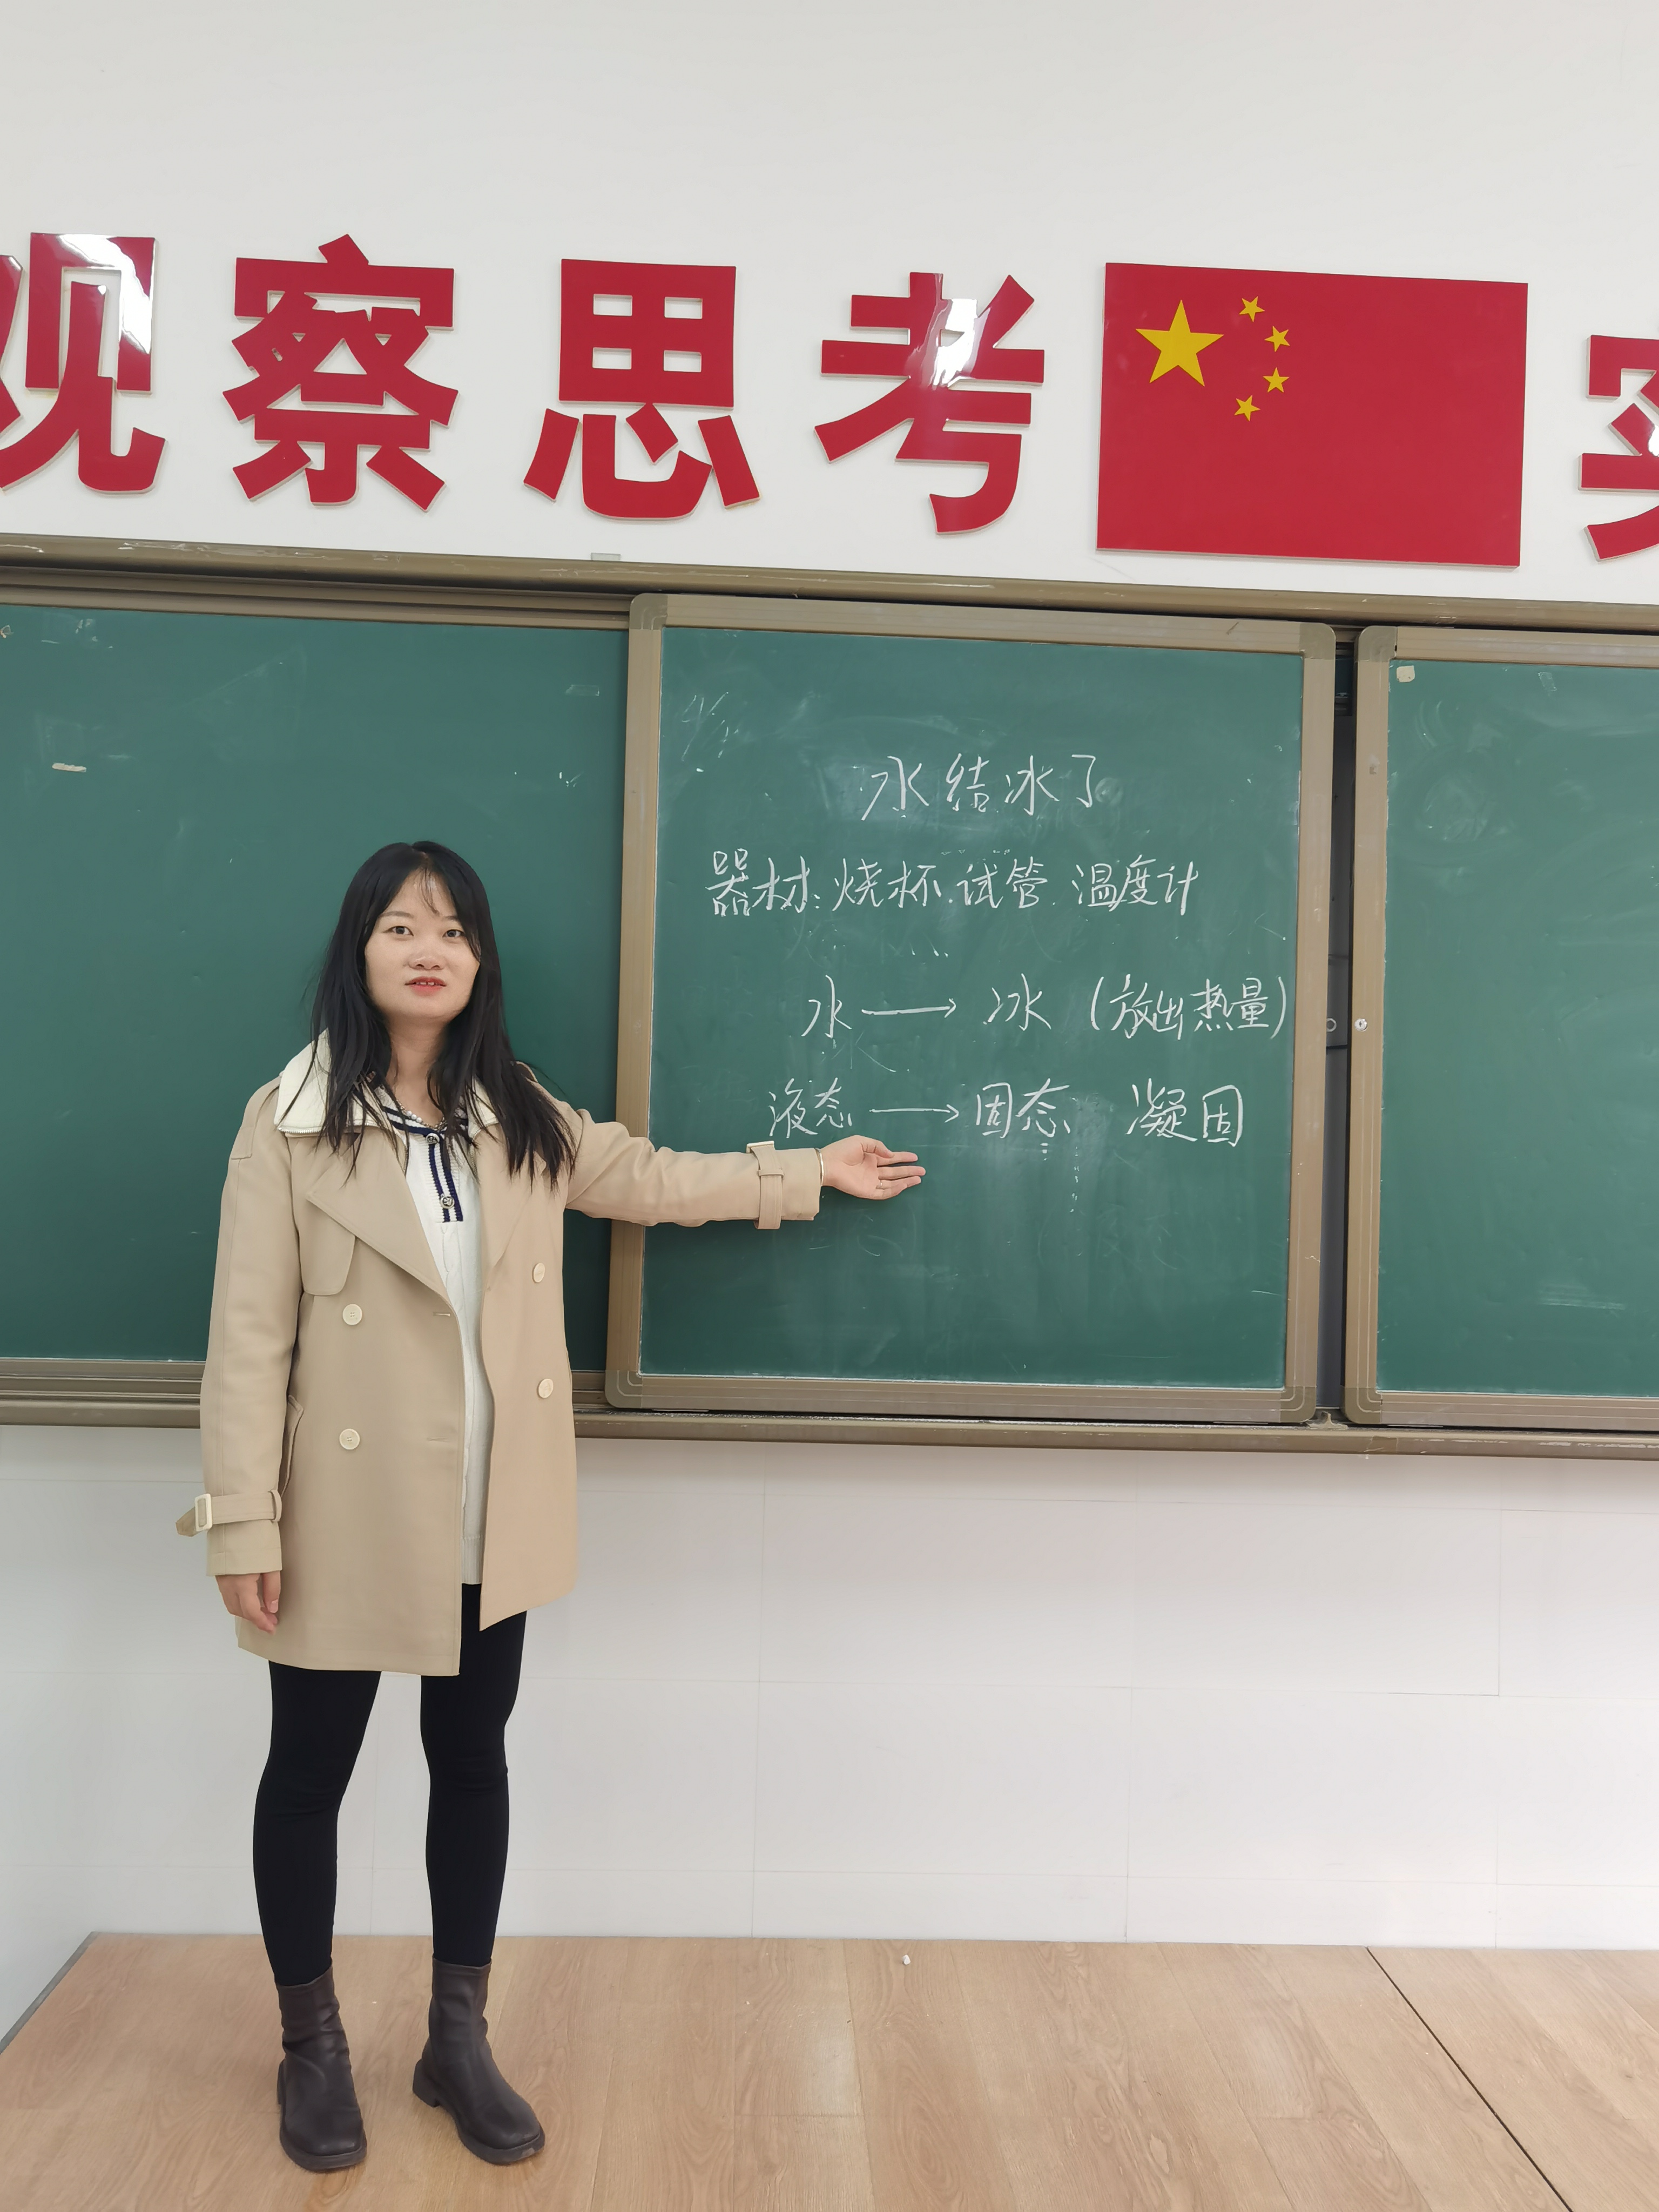 观察思考
水结冰了
器材:烧杯.试管.温度计
水→冰(放出热量)
液态→固态 凝固